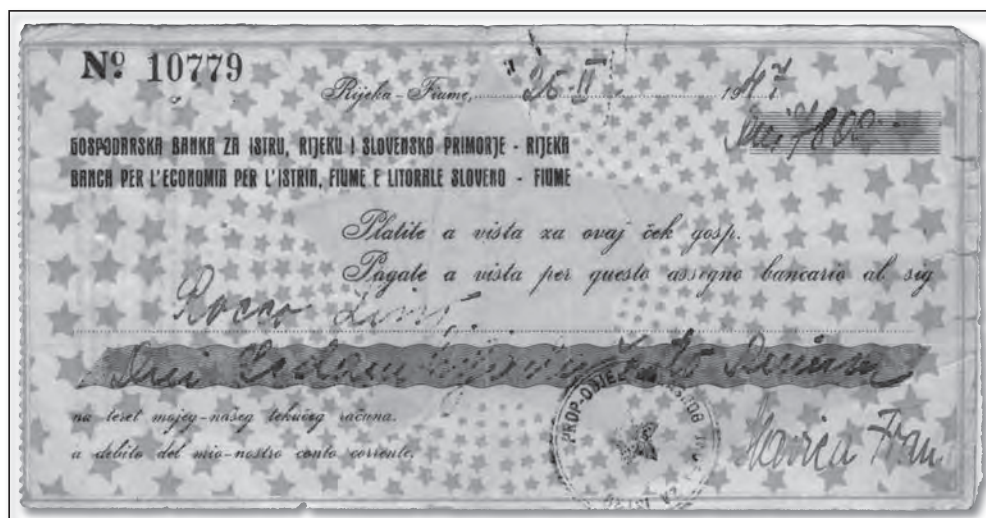 Nº 10779
Rijeka - Fiume, 26-II- 1947
Din 7800-
GOSPODARSKA BANKA ZA ISTRU, RIJEKU I SLOVENSKO PRIMORJE - RIJEKA
BANCA PER L'ECONOMIA PER L'ISTRIA, FIUME E LITORALE SLOVENO - FIUME
Platite a vista za ovaj ček gosp.
Pagate a vista per questo assegno bancario al sig
Rocco
Sedam
na teret mojeg-našeg tekućeg računa.
a debito del mio-nostro conto corrente.
PROP-ODJEL
Fran
ZA ISTRU